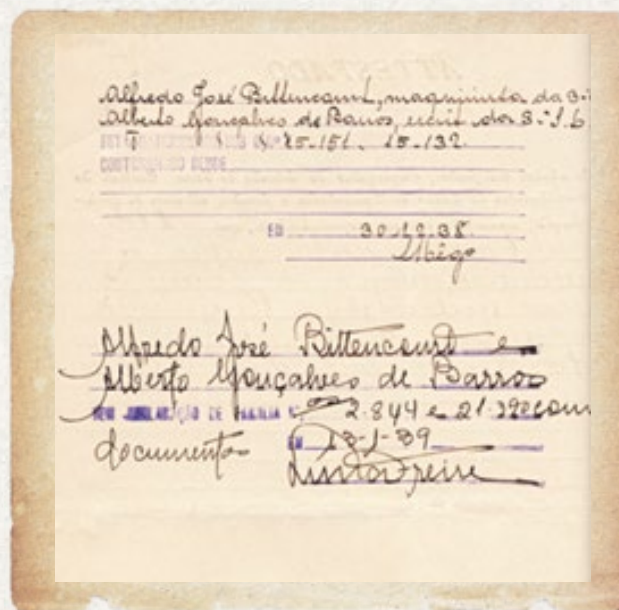 Alfredo José Bittencourt, maquinista da 3.ª
Alberto Gonçalves de Barros, da 3.ª
15.151. 15.132.
CONTEM
EM 30.12.38.
Alfredo José Bittencourt e
Alberto Gonçalves de Barros
DE FAMILIA N. 2.844 e 21. com
documentos EM 13-1-39
Freire